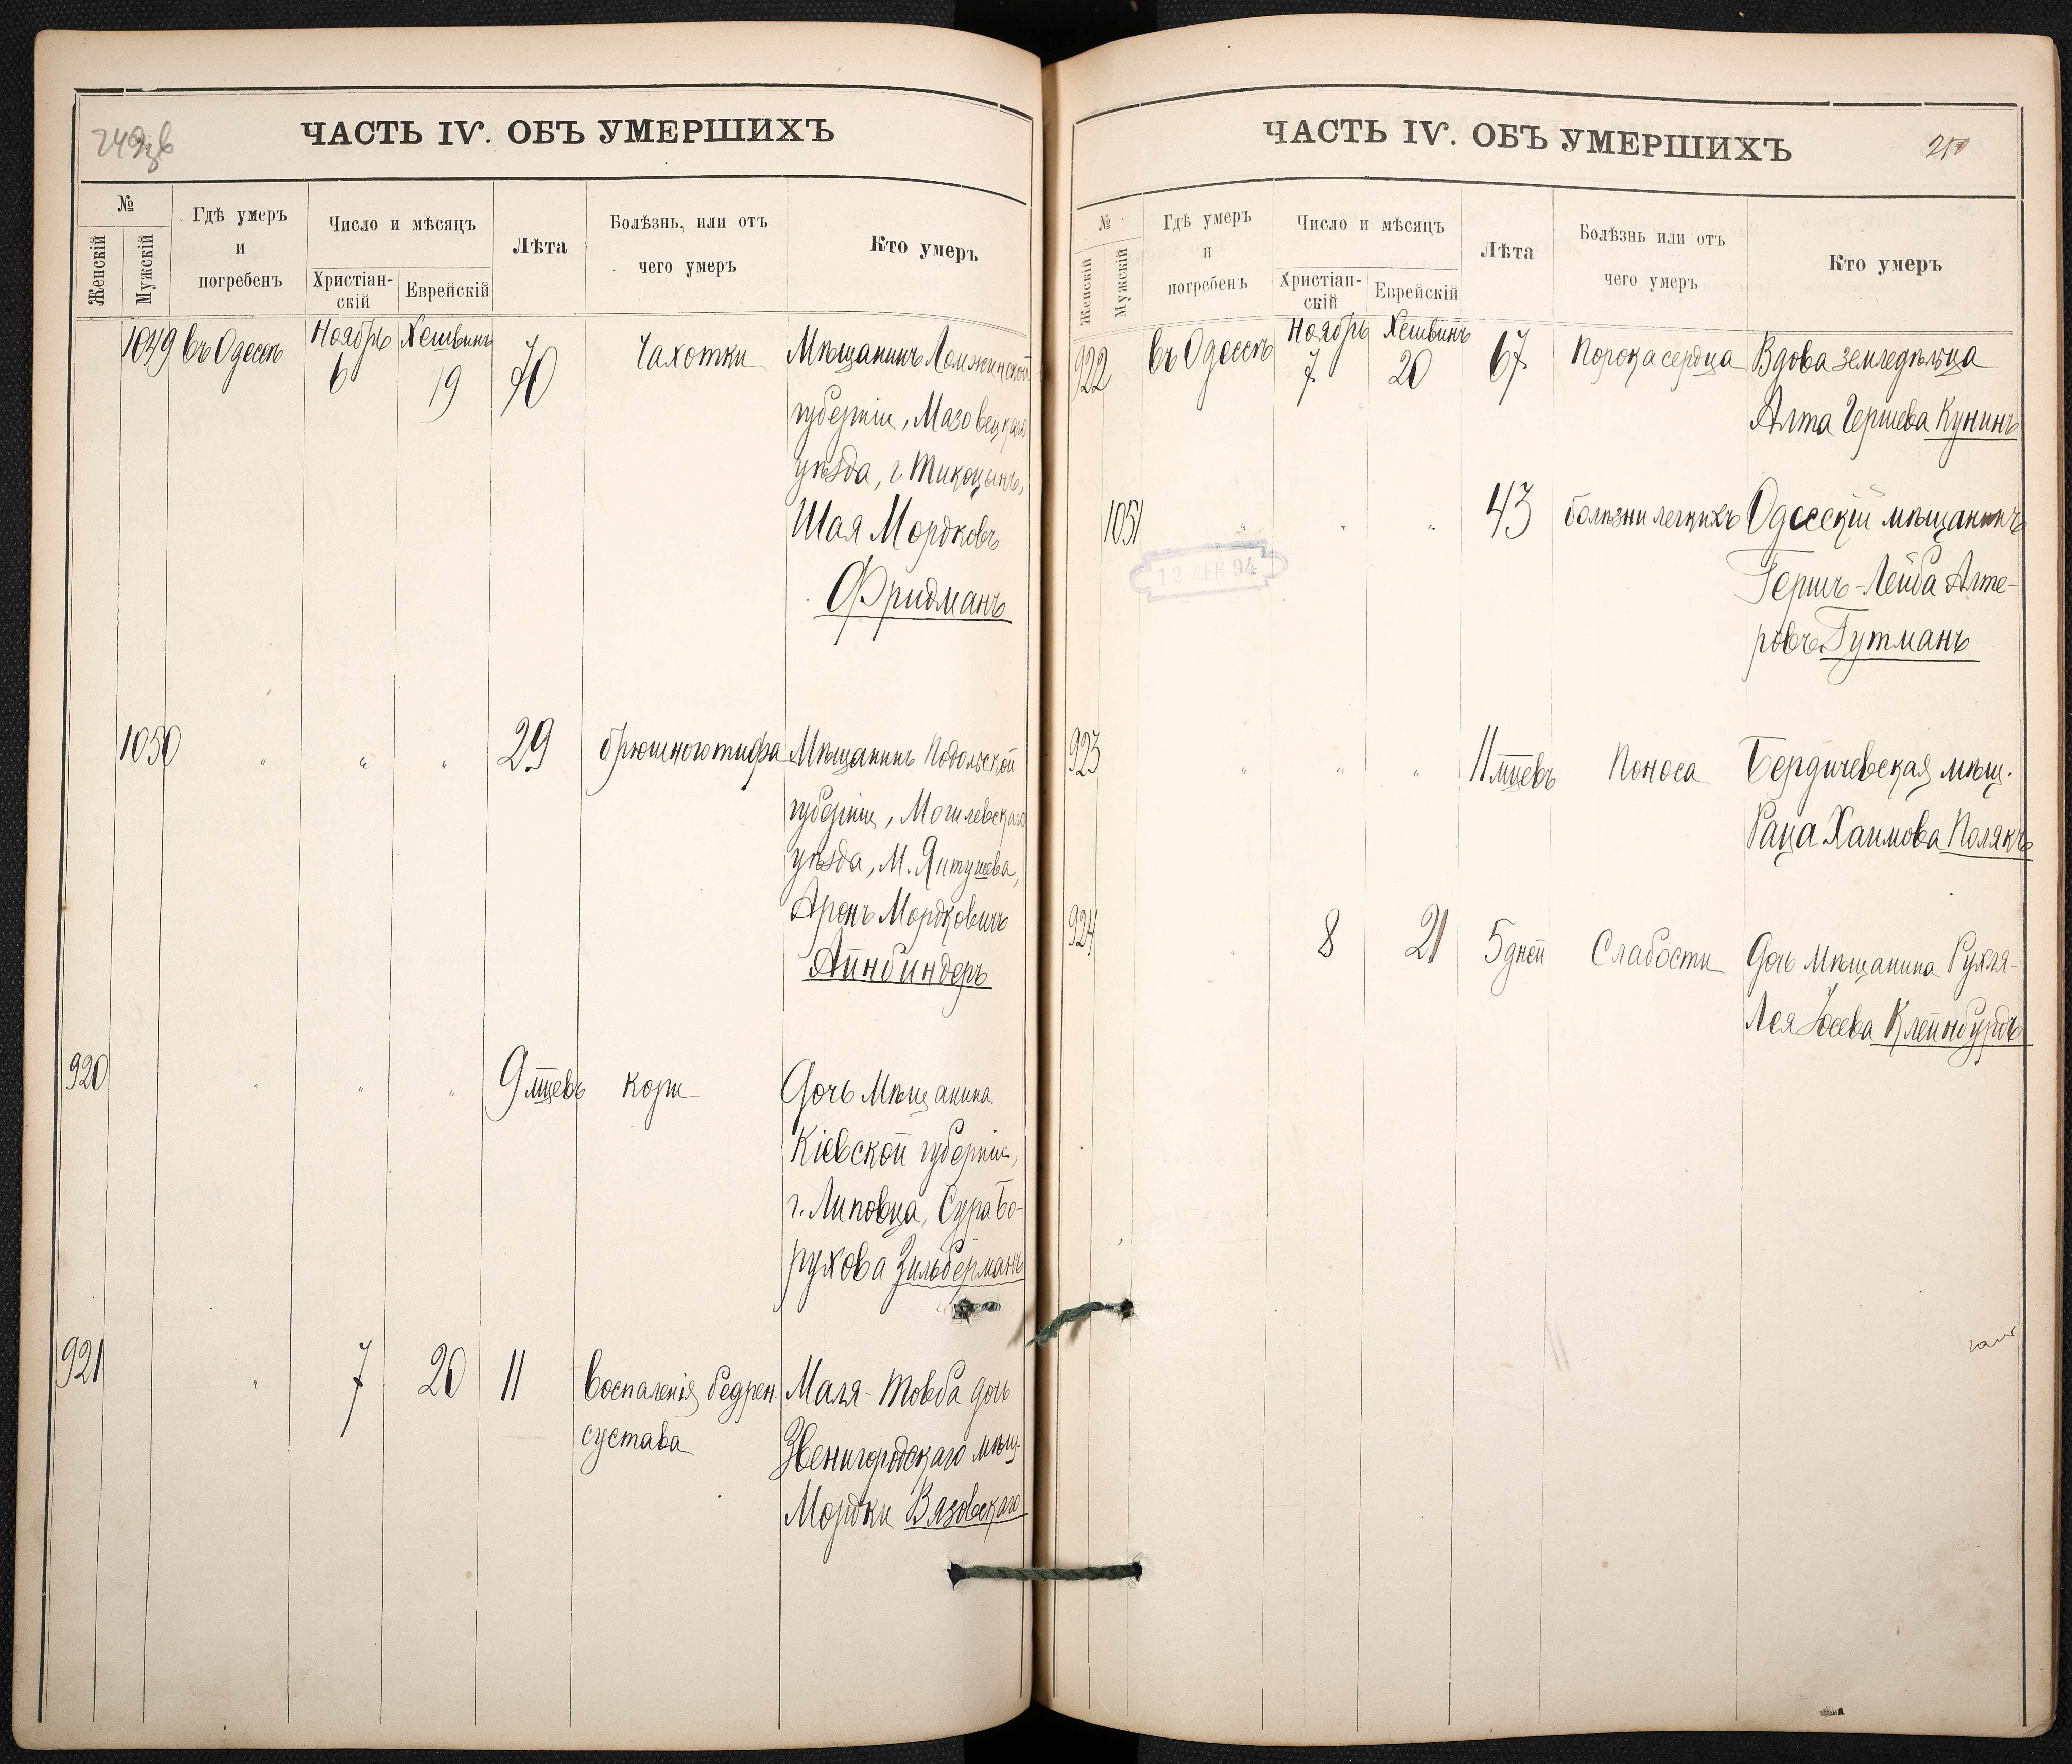 249 об
ЧАСТЬ IV. ОБЪ УМЕРШИХЪ
№
Женскій
Мужскій
Гдѣ умеръ
и
погребенъ
Число и мѣсяцъ
Христіан-
скій
Еврейскій
Лѣта
Болѣзнь, или отъ
чего умеръ
Кто умеръ
1049 въ Одессѣ Ноябрь 6 Хешвинъ 19 70 Чахотки Мѣщанинъ Ломжинской
губерніи, Мазовецкаго
уѣзда, г. Тикоцынъ,
Шая Мордковъ
Фридманъ
1050 " " " 29 брюшного тифа Мѣщанинъ Подольской
губерніи, Могилевскаго
уѣзда, М. Янтушева,
Аронъ Мордковичъ
Айнбиндеръ
920 " " " 9 мцевъ кори Дочь Мѣщанина
Кіевской губерніи,
г. Липовца, Сура Бо-
рухова Зильберманъ
921 " 7 20 11 Воспаленія бедрен. Маля-Товба дочь
сустава Звенигородскаго мѣщ.
Мордки Вязовскаго
ЧАСТЬ IV. ОБЪ УМЕРШИХЪ
250
№
Женскій
Мужскій
Гдѣ умеръ
и
погребенъ
Число и мѣсяцъ
Христіан-
скій
Еврейскій
Лѣта
Болѣзнь или отъ
чего умеръ
Кто умеръ
922 въ Одессѣ Ноябрь 7 Хешвинъ 20 67 Порока сердца Вдова земледѣльца
Алта Гершева Кунинъ
1051 " " " 43 болѣзни легкихъ Одесскій мѣщанинъ
12 ДЕК 94
Гершъ-Лейба Алте-
ровъ Гутманъ
923 " " " 11 мцевъ Поноса Бердичевская мѣщ.
Раца Хаимова Полякъ
924 " 8 21 5 дней Слабости Дочь Мѣщанина Рухля-
Лея Іосева Клейнбурдъ